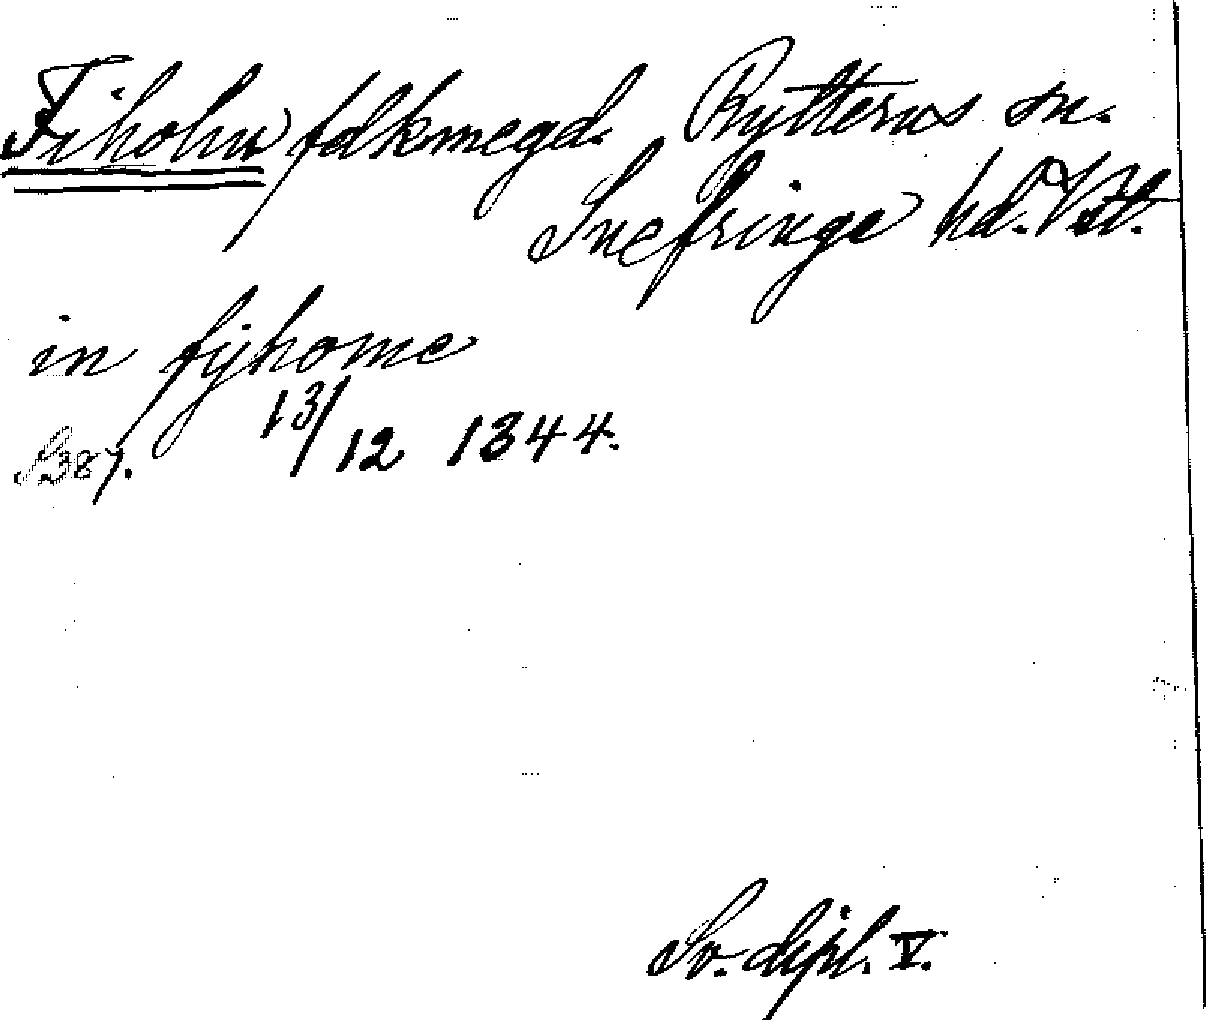 Fiholm fdkmegd. Rytterns sn.
Snefringe hd. Vstl.
in fijhome
S. 387. 13/12 1344.
Sv. dipl. V.